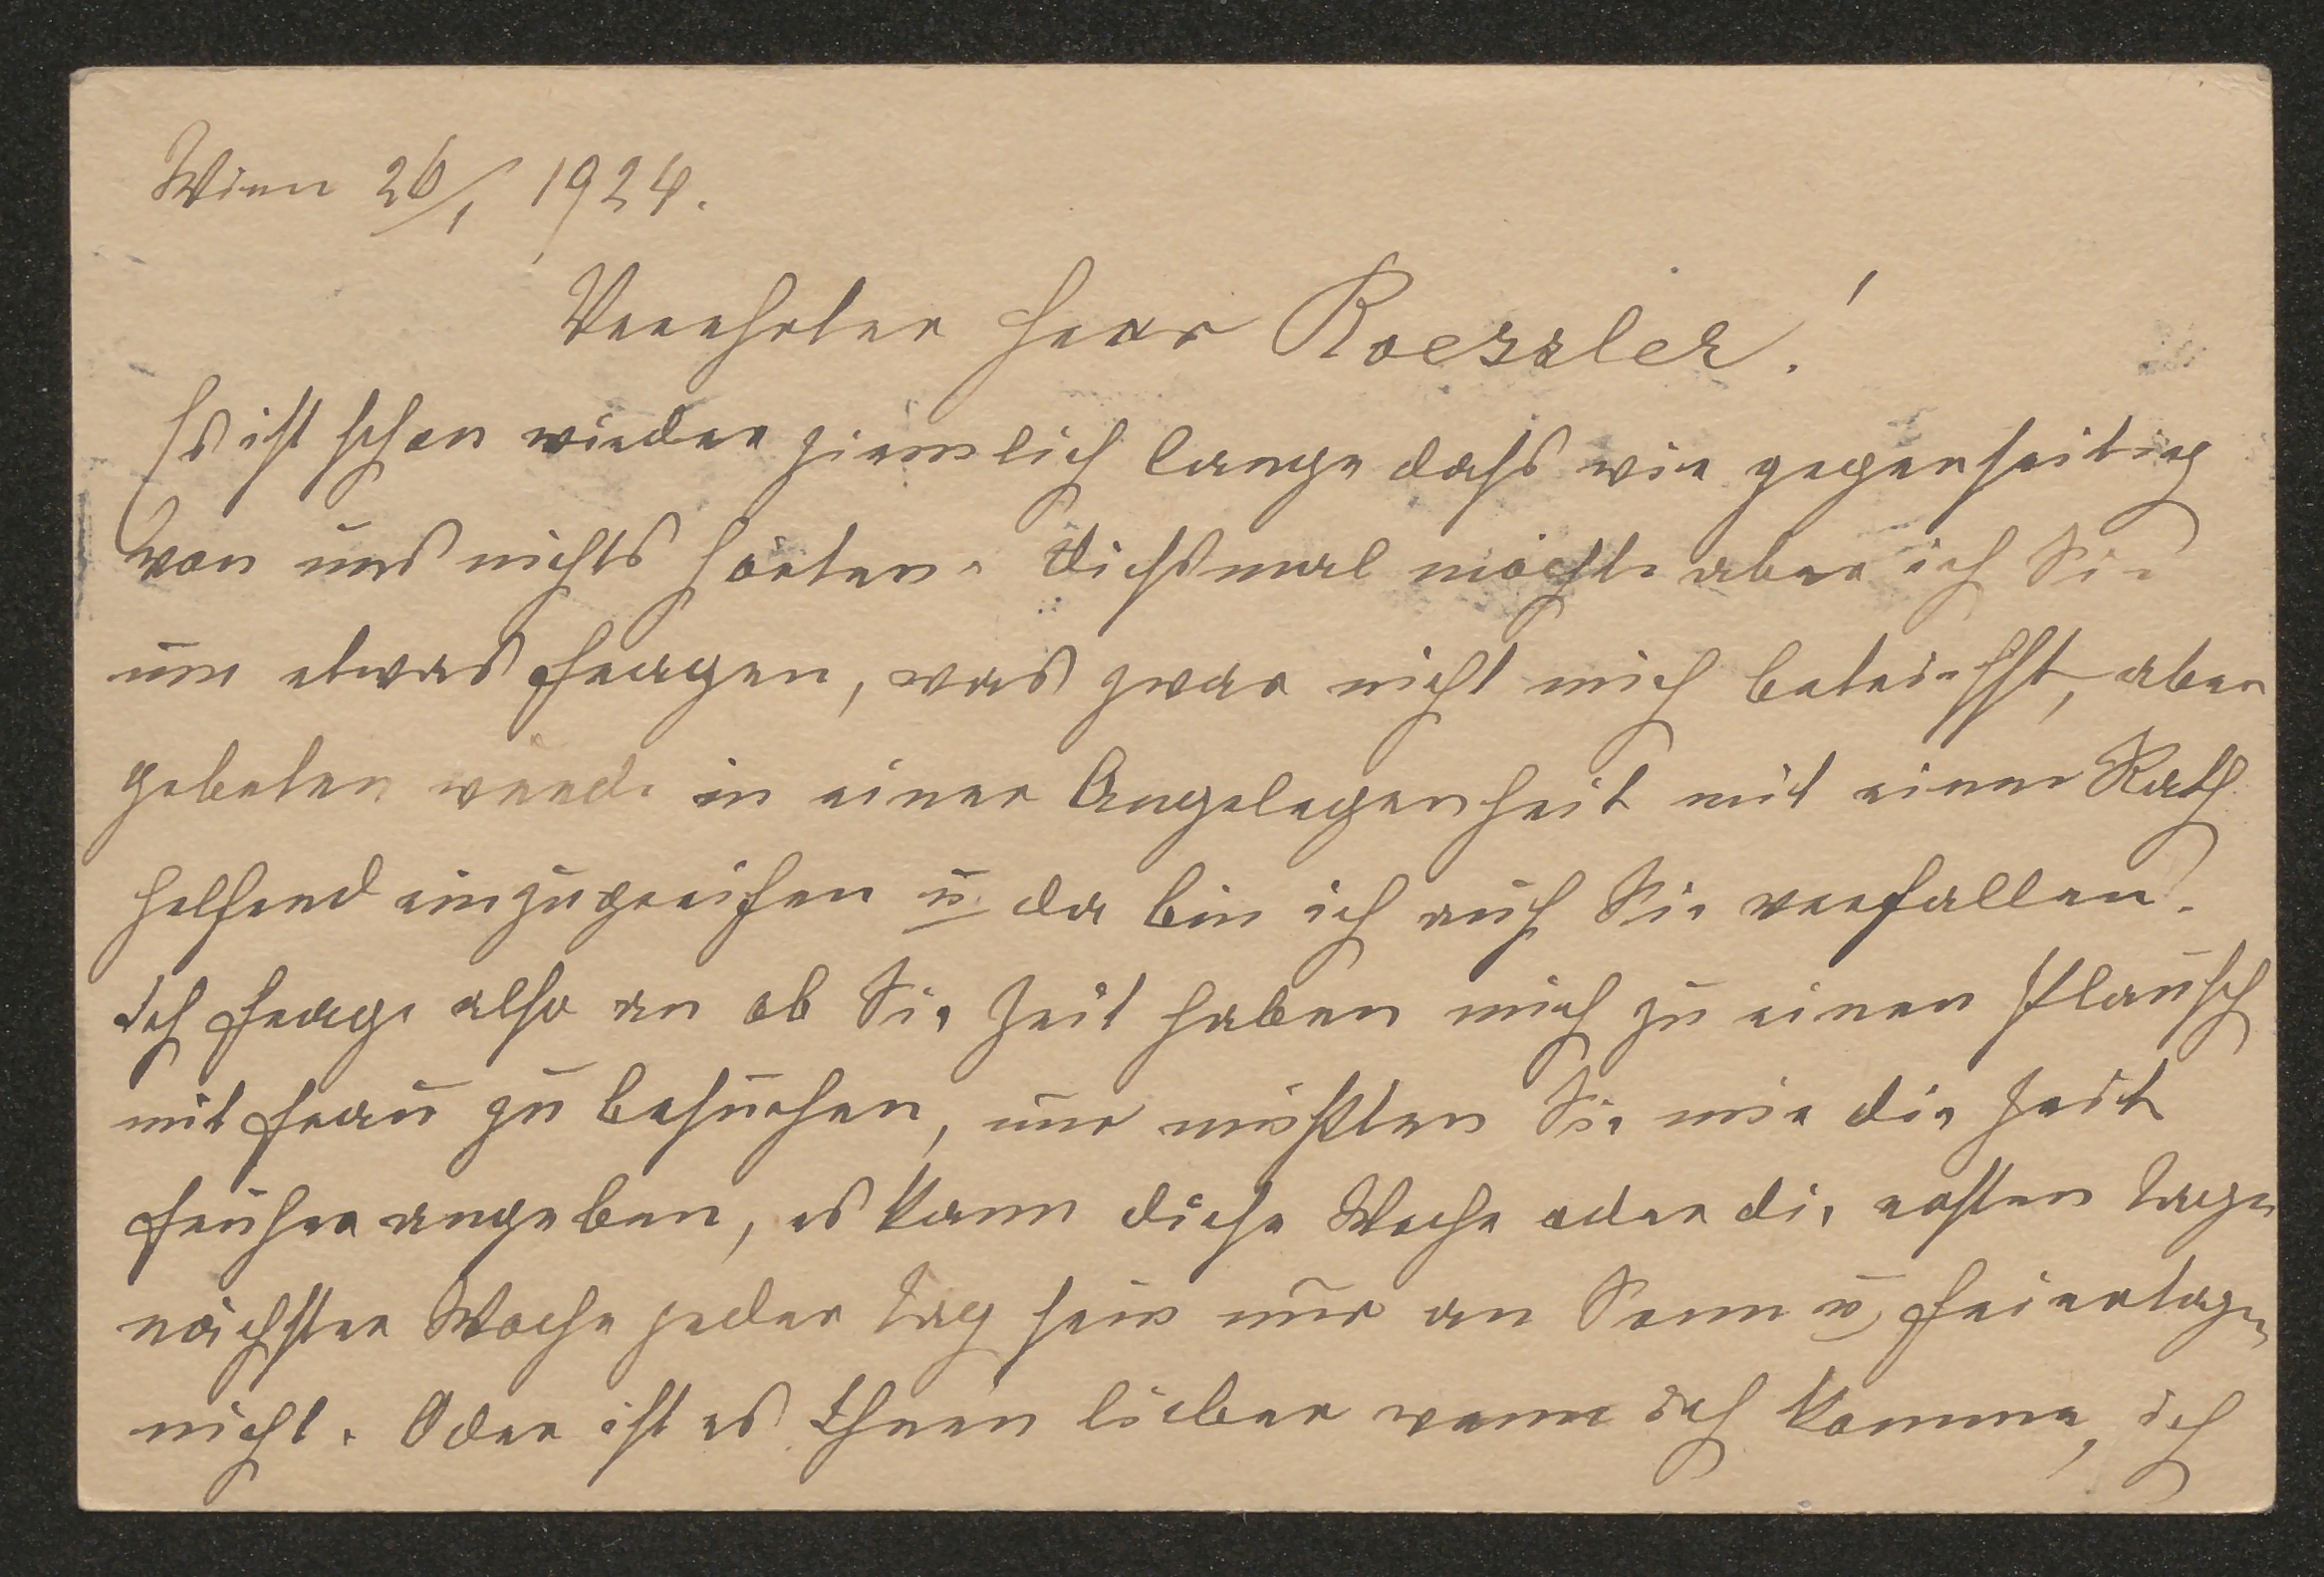 Wien 26/1 1924.
Verehrter Herr Roessler!
Es ist schon wieder ziemlich lange dass wir gegenseitig
von uns nichts hörten. Diessmal möchte aber ich Sie
um etwas fragen, was zwar nicht mich betriefft, aber
gebeten werde in einer Angelegenheit mit einem Rath
helfend einzugreifen u. da bin ich auf Sie verfallen.
Ich frage also an ob Sie Zeit haben mich zu einen Plausch
mit Frau zu besuchen, nur müssten Sie mir die Zeit
früher angeben, es kann diese Woche oder die ersten Tage
nächster Woche jeder Tag sein nur an Sonn u. Feiertagen
nicht. Oder ist es Ihnen lieber wenn ich komme, ich